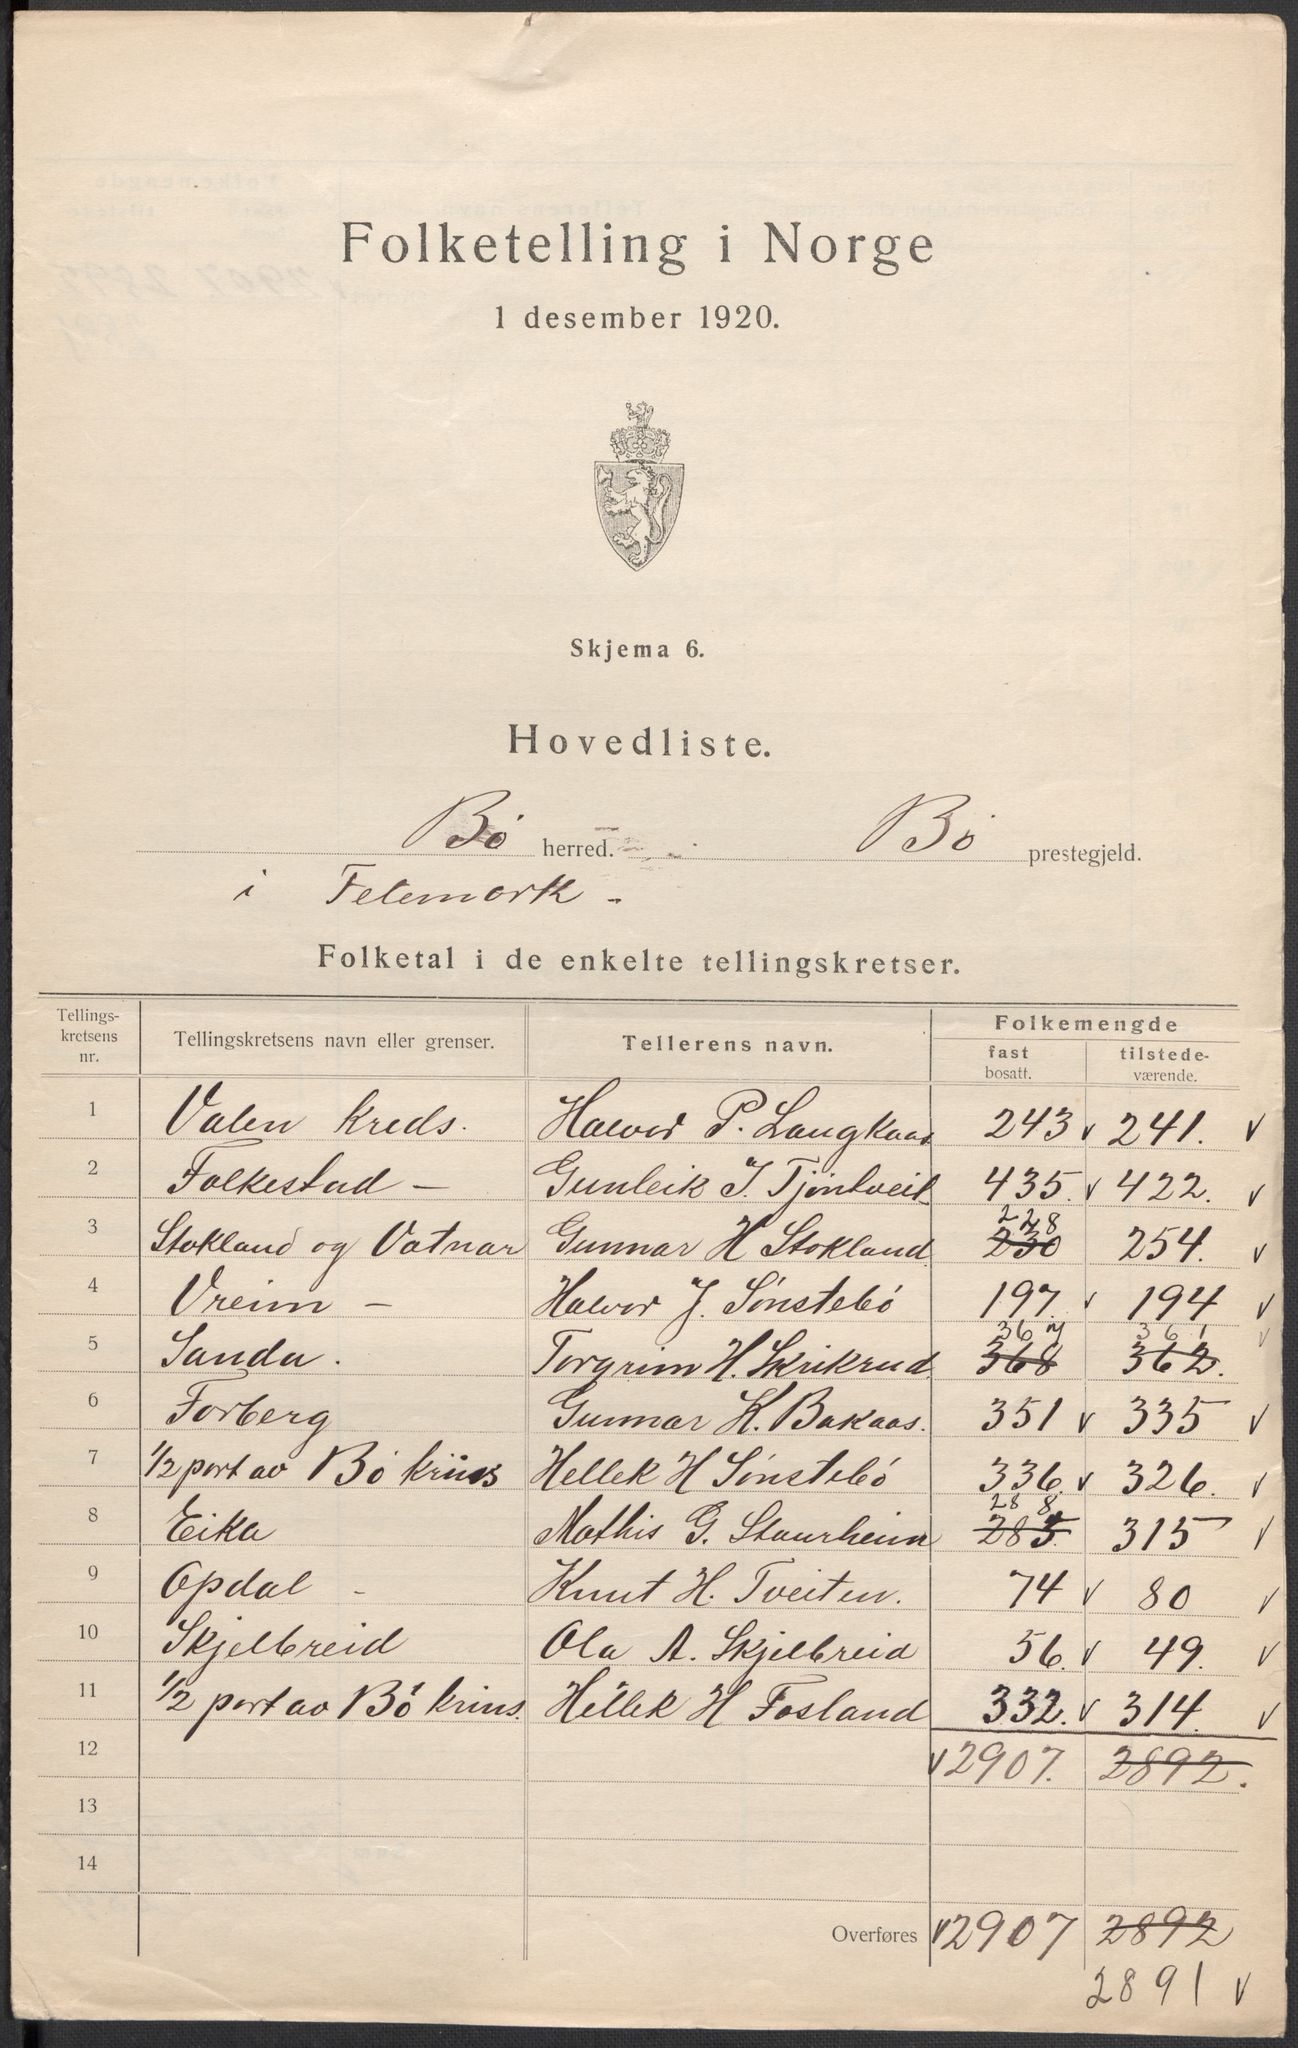 Folketelling i Norge
1 desember 1920.
Skjema 6.
Hovedliste.
Bö herred. Bö prestegjeld.
i Telemark -
Folketal i de enkelte tellingskretser.
Tellings-kretsens nr. Tellingskretsens navn eller grenser. Tellerens navn. Folkemengde fast bosatt. tilstede-værende.
1 Valen kreds. Halvor P. Langkaas 243 v 241. v
2 Folkestad — Gunleik J. Tjöntveit 435. v 422. v
3 Stokland og Vatnar Gunnar H Stokland 230 228 254. v
4 Vreim — Halvor J. Sönstebö 197. v 194 v
5 Sanda. Torgrim H. Skrikrud 368 367 362. 361 v
6 Forberg Gunnar K. Bakaas. 351 v 335 v
7 1/2 part av Bö krins Hellek H Sönstebö 336. v 326. v
8 Eika Mathis G. Staurheim 285. 288 315 v
9 Opdal - Knut H. Tveiten. 74 v 80 v
10 Skjelbreid Ola A. Skjelbreid 56. v 49. v
11 1/2 part av Bö krins. Hellek H Fosland 332. v 314. v
12 v 2907. 2892.
13
14
Overføres v 2907 2892
2891 v